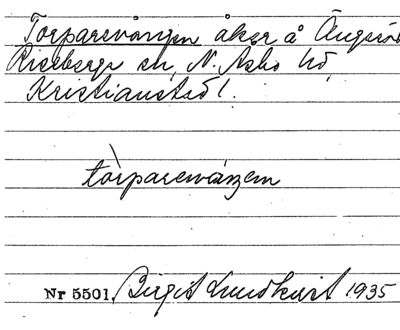 Torparevången åker å Ängsrö
Riseberga sn, N. Åsbo hd,
Kristianstad l.
tòrparevåŋen
Nr 5501. Birgit Lundkvist 1935